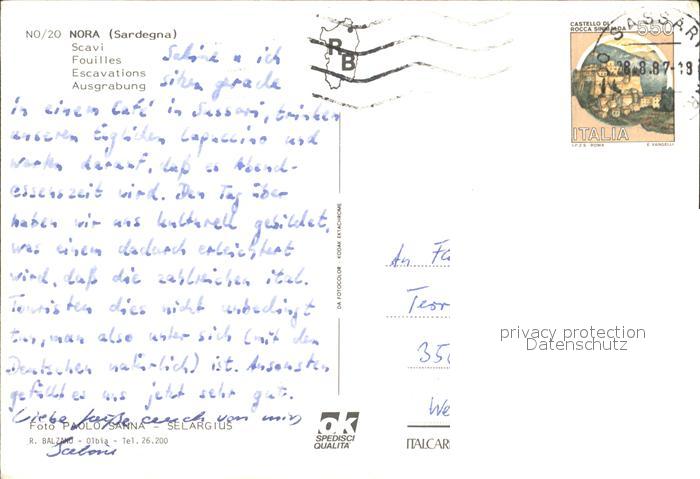 NO/20 NORA (Sardegna)
Scavi
Fouilles
Escavations
Ausgrabung
Sabine u ich
sitzen gerade
in einem Café in Sassari, trinken
unseren täglichen Capuccino und
warten darauf, daß es Abend-
essenszeit wird. Den Tag über
haben wir uns kulturell gebildet,
was einem dadurch erleichtert
wird, daß die zahlreichen ital.
Touristen dies nicht unbedingt
tun, man also unter sich (mit den
Deutschen natürlich) ist. Ansonsten
gefällt es uns jetzt sehr gut.
Liebe Grüße auch von mir
Sabine
Foto PAOLO SANNA - SELARGIUS
R. BALZANO - Olbia - Tel. 26.200
RB
DA FOTOCOLOR KODAK EKTACHROME
ok
SPEDISCI
QUALITA'
CASTELLO DI
ROCCA SINIBALDA
550
ITALIA
I.P.Z.S. ROMA E. VANGELLI
SASSAR
28.8.87-19
An
Teor
350
We
ITALCAR
privacy protection
Datenschutz